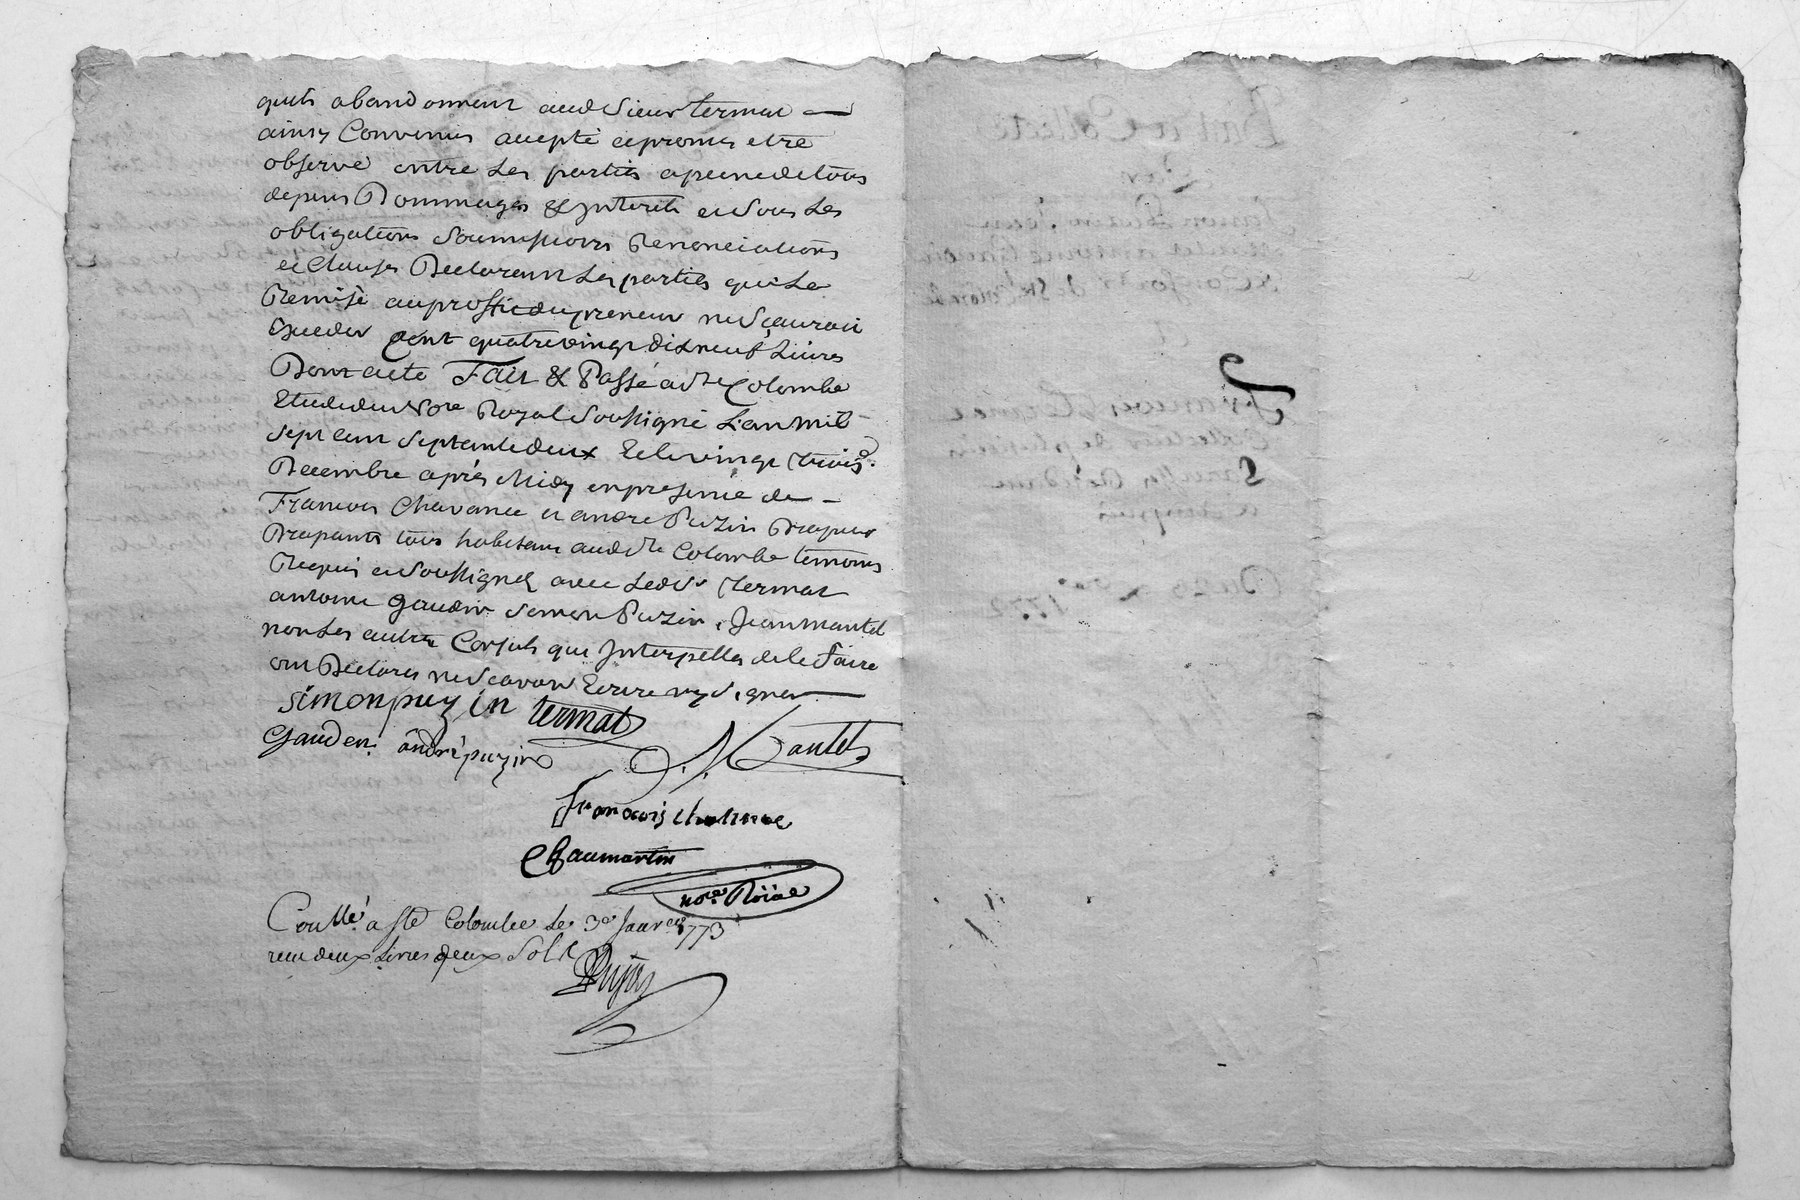 quils abandonnent aud Sieur termat —
ainsy Convenus accepté et promis etre
observé entre les parties a peine de tous
depens Dommages & Jnterets et Sous les
obligations Soumissions Renonciations
et Clauses Declarant les parties que la
Remise au proffit du preneur ne Scauroit
Exceder Cent quatre vingt dix neuf Livres
Dont acte Fait & Passé a Ste Colombe
Etude du Nore Royal Soussigné L'an mil
sept cent septante deux Et le vingt trois
Decembre aprés Midy en presence de —
Francois Chavance et andre Puzin Drapiers
Drapants tous habitans aud Ste Colombe temoins
Requis et Soussignés avec Led Sr termat
antoine gaudin Simon Puzin, Jean mantel
non Les autres Consuls qui Jnterpellés de le Faire
ont Declarés ne Scavoir Ecrire ny Signer
simon puzin termat
Gauden andré puzin J. Mantel
francois Chavance
Chaumartin
nore Roial
Conllé a Ste Colombe Le 3e Janver 1773
recu deux Livres deux Sols
Bail a Collecte
Par
Simon Puzin Jean
mantel antoine Gaudin
de Ste Colombe
A
Sr Francois termat
Collecteur de plusieurs
Du 23 Xbre 1772